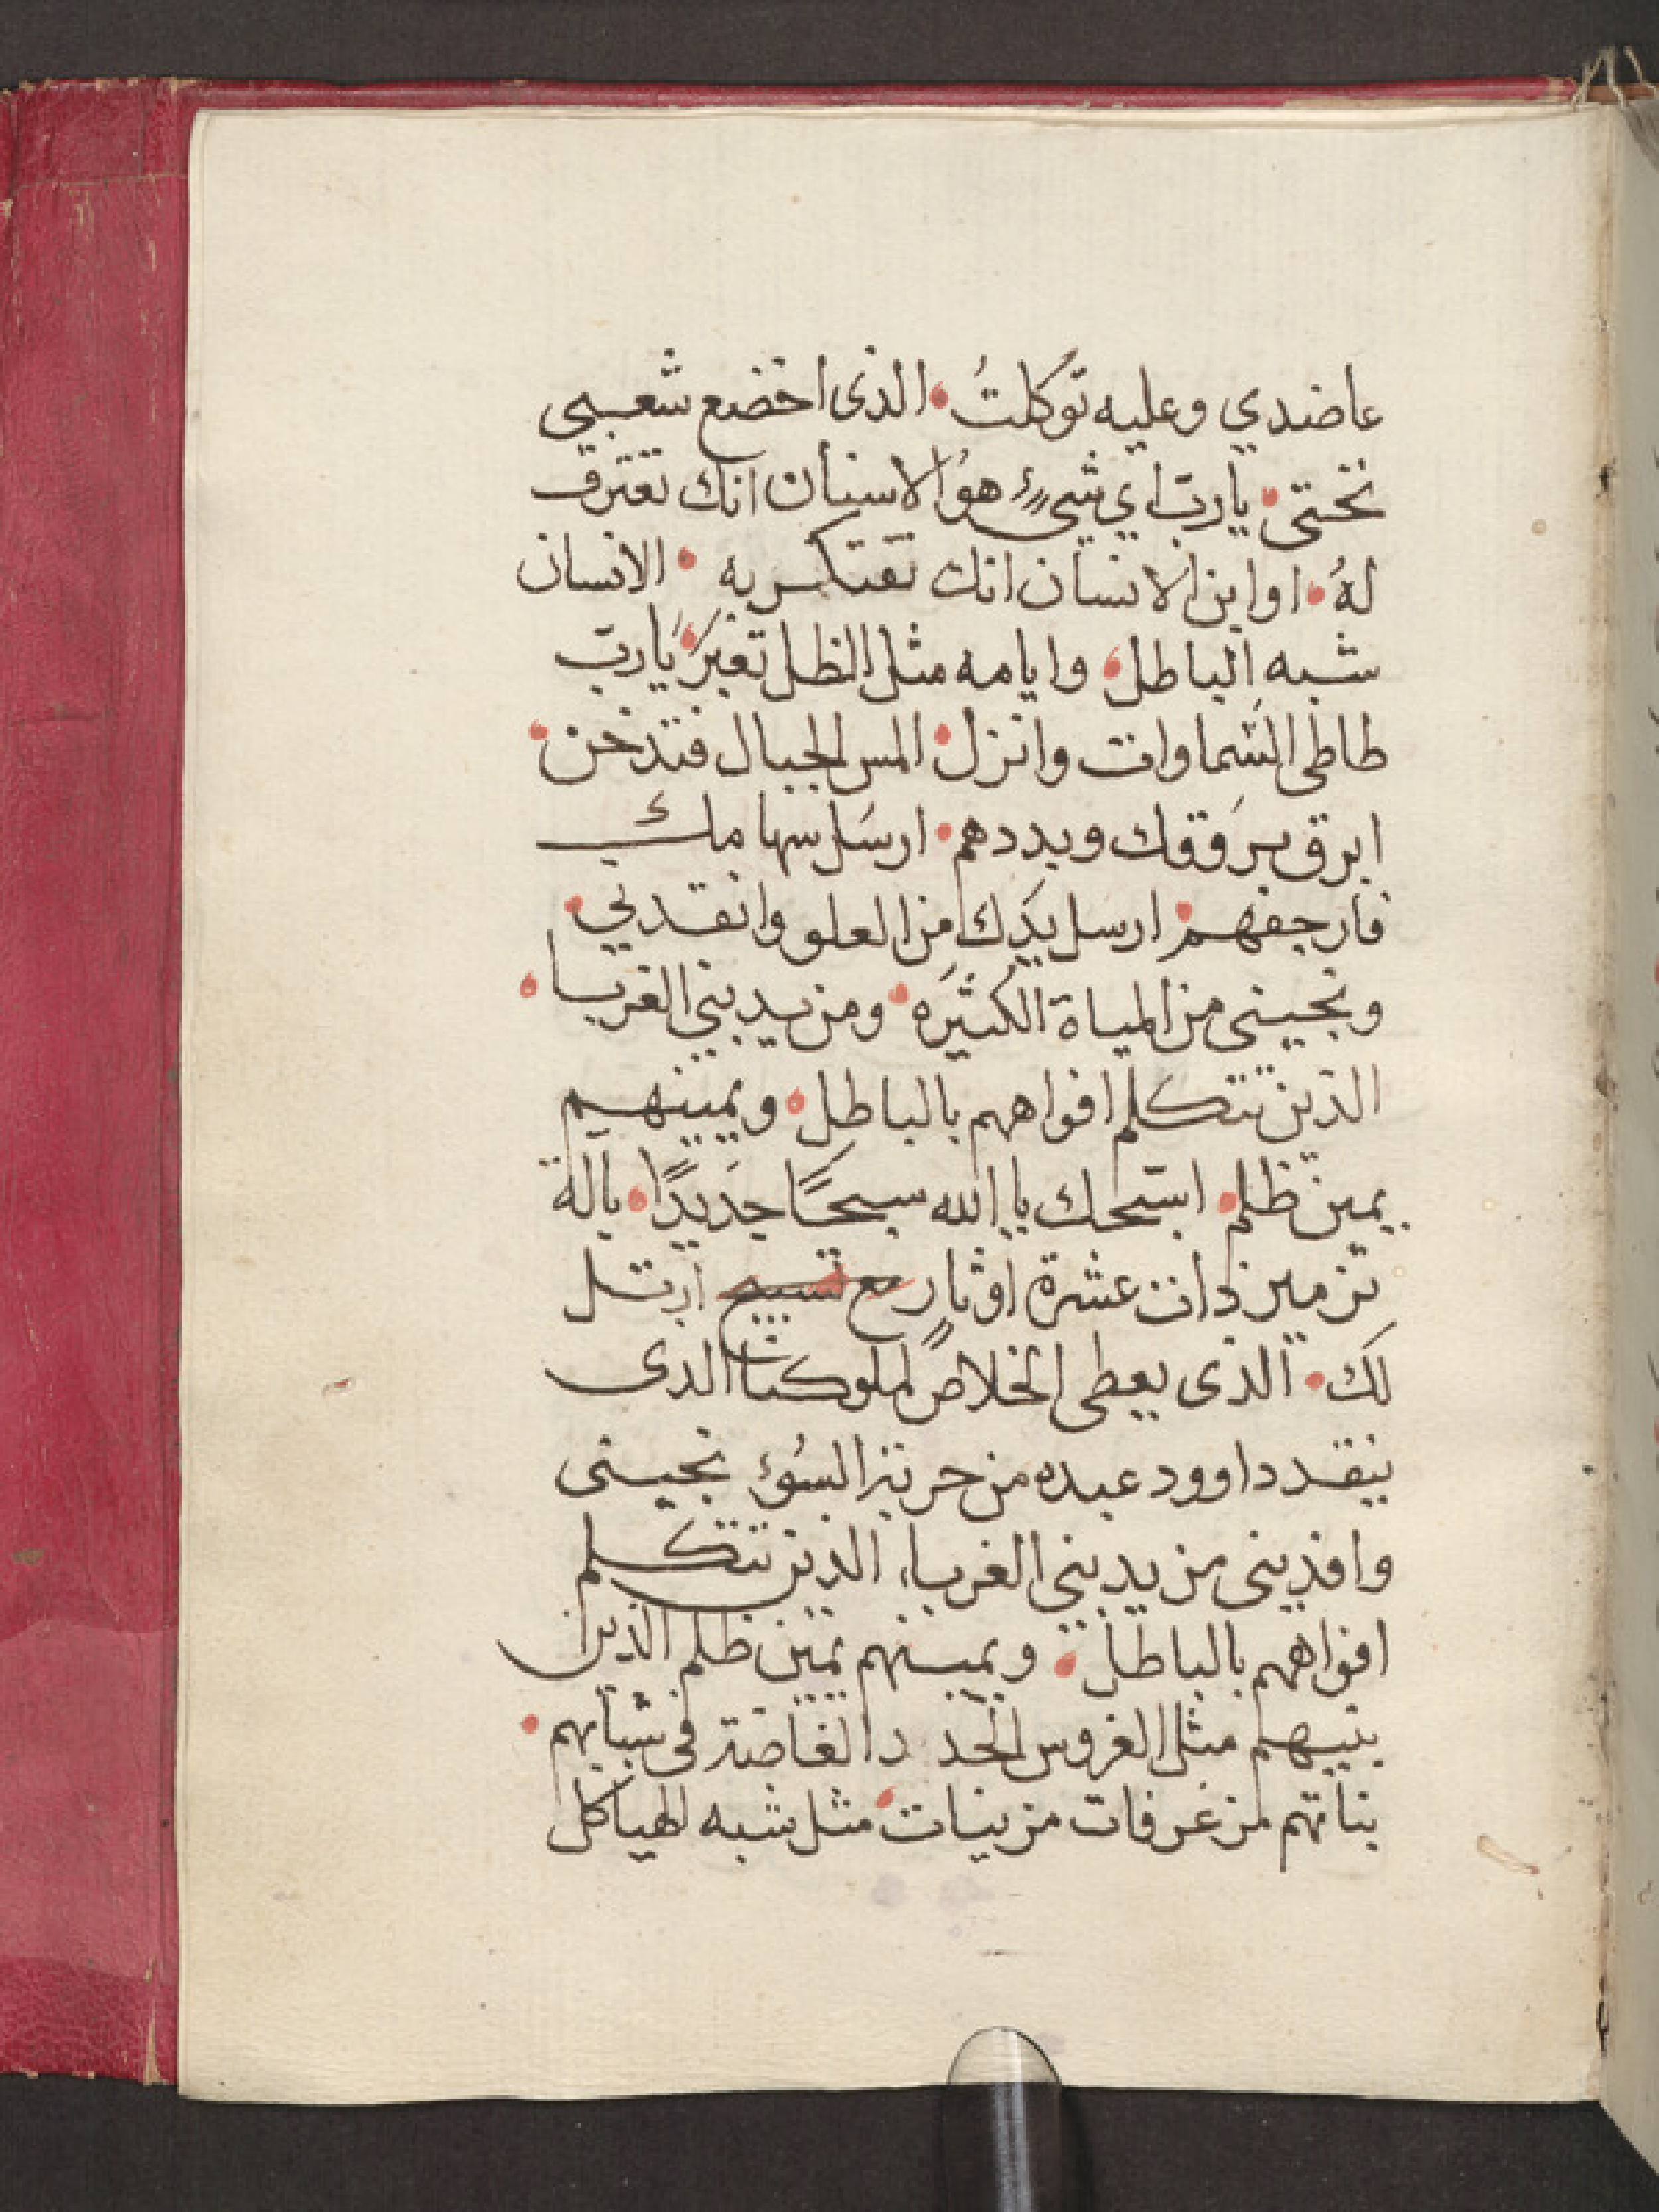 عاضدي وعليه توكلتُ • الذى اخضع شعبي
تحتى • يارب اي شيءٍ هو الانسان انك تعترف
لهُ • او ابن الانسان انك تفتكر به • الانسان
شبه الباطل • وايامه مثل الظل تعبر • يارب
طاطى السماوات وانزل • المس الجبال فتدخن •
ابرق بروقك وبددهم • ارسل سهامك
فارجفهم • ارسل يدك من العلو وانقدني •
ونجينى من المياة الكثيره • ومن يد بني الغربا •
الذين تتكلم افواههم بالباطل • ويمينهم
يمين ظلم • اسبحك يا الله سبحًا جديدًا • بآلة
تزمير ذات عشرة اوتار مع تسبيح ارتل
لك • الذى يعطى الخلاص لملوكنا الدى
ينقد داوود عبده من حربة السُوءِ نجينى
وافدينى من يد بني الغرباء الدين تتكلم
افواههم بالباطل • ويمينهم يمين ظلم الذين
بنيهم مثل الغروس الجدد الغاضة فى شبابهم •
بناتهم مزغرفات مزينات • مثل شبه الهياكل